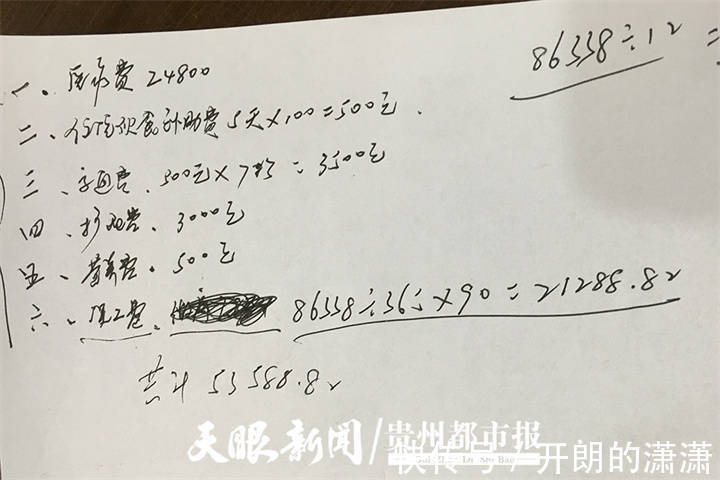 86338÷12=
一、医疗费 24800
二、住院伙食补助费 5天×100=500元.
三、交通费、500元×7次=3500元
四、护理费、3000元
五、营养费、500元
六、误工费、86338÷365×90=21288.82
共计 53588.82
天眼新闻/贵州都市报
Gui Zhou Du Shi Bao
快传号/开朗的潇潇